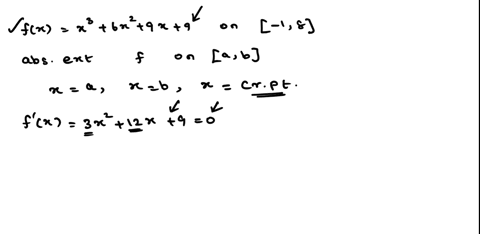 ✓f(x) = x³ + 6x² + 9x + 9 on [-1, 8]
abs. ext f on [a, b]
x = a, x = b, x = cr. pt.
f'(x) = 3x² + 12x + 9 = 0